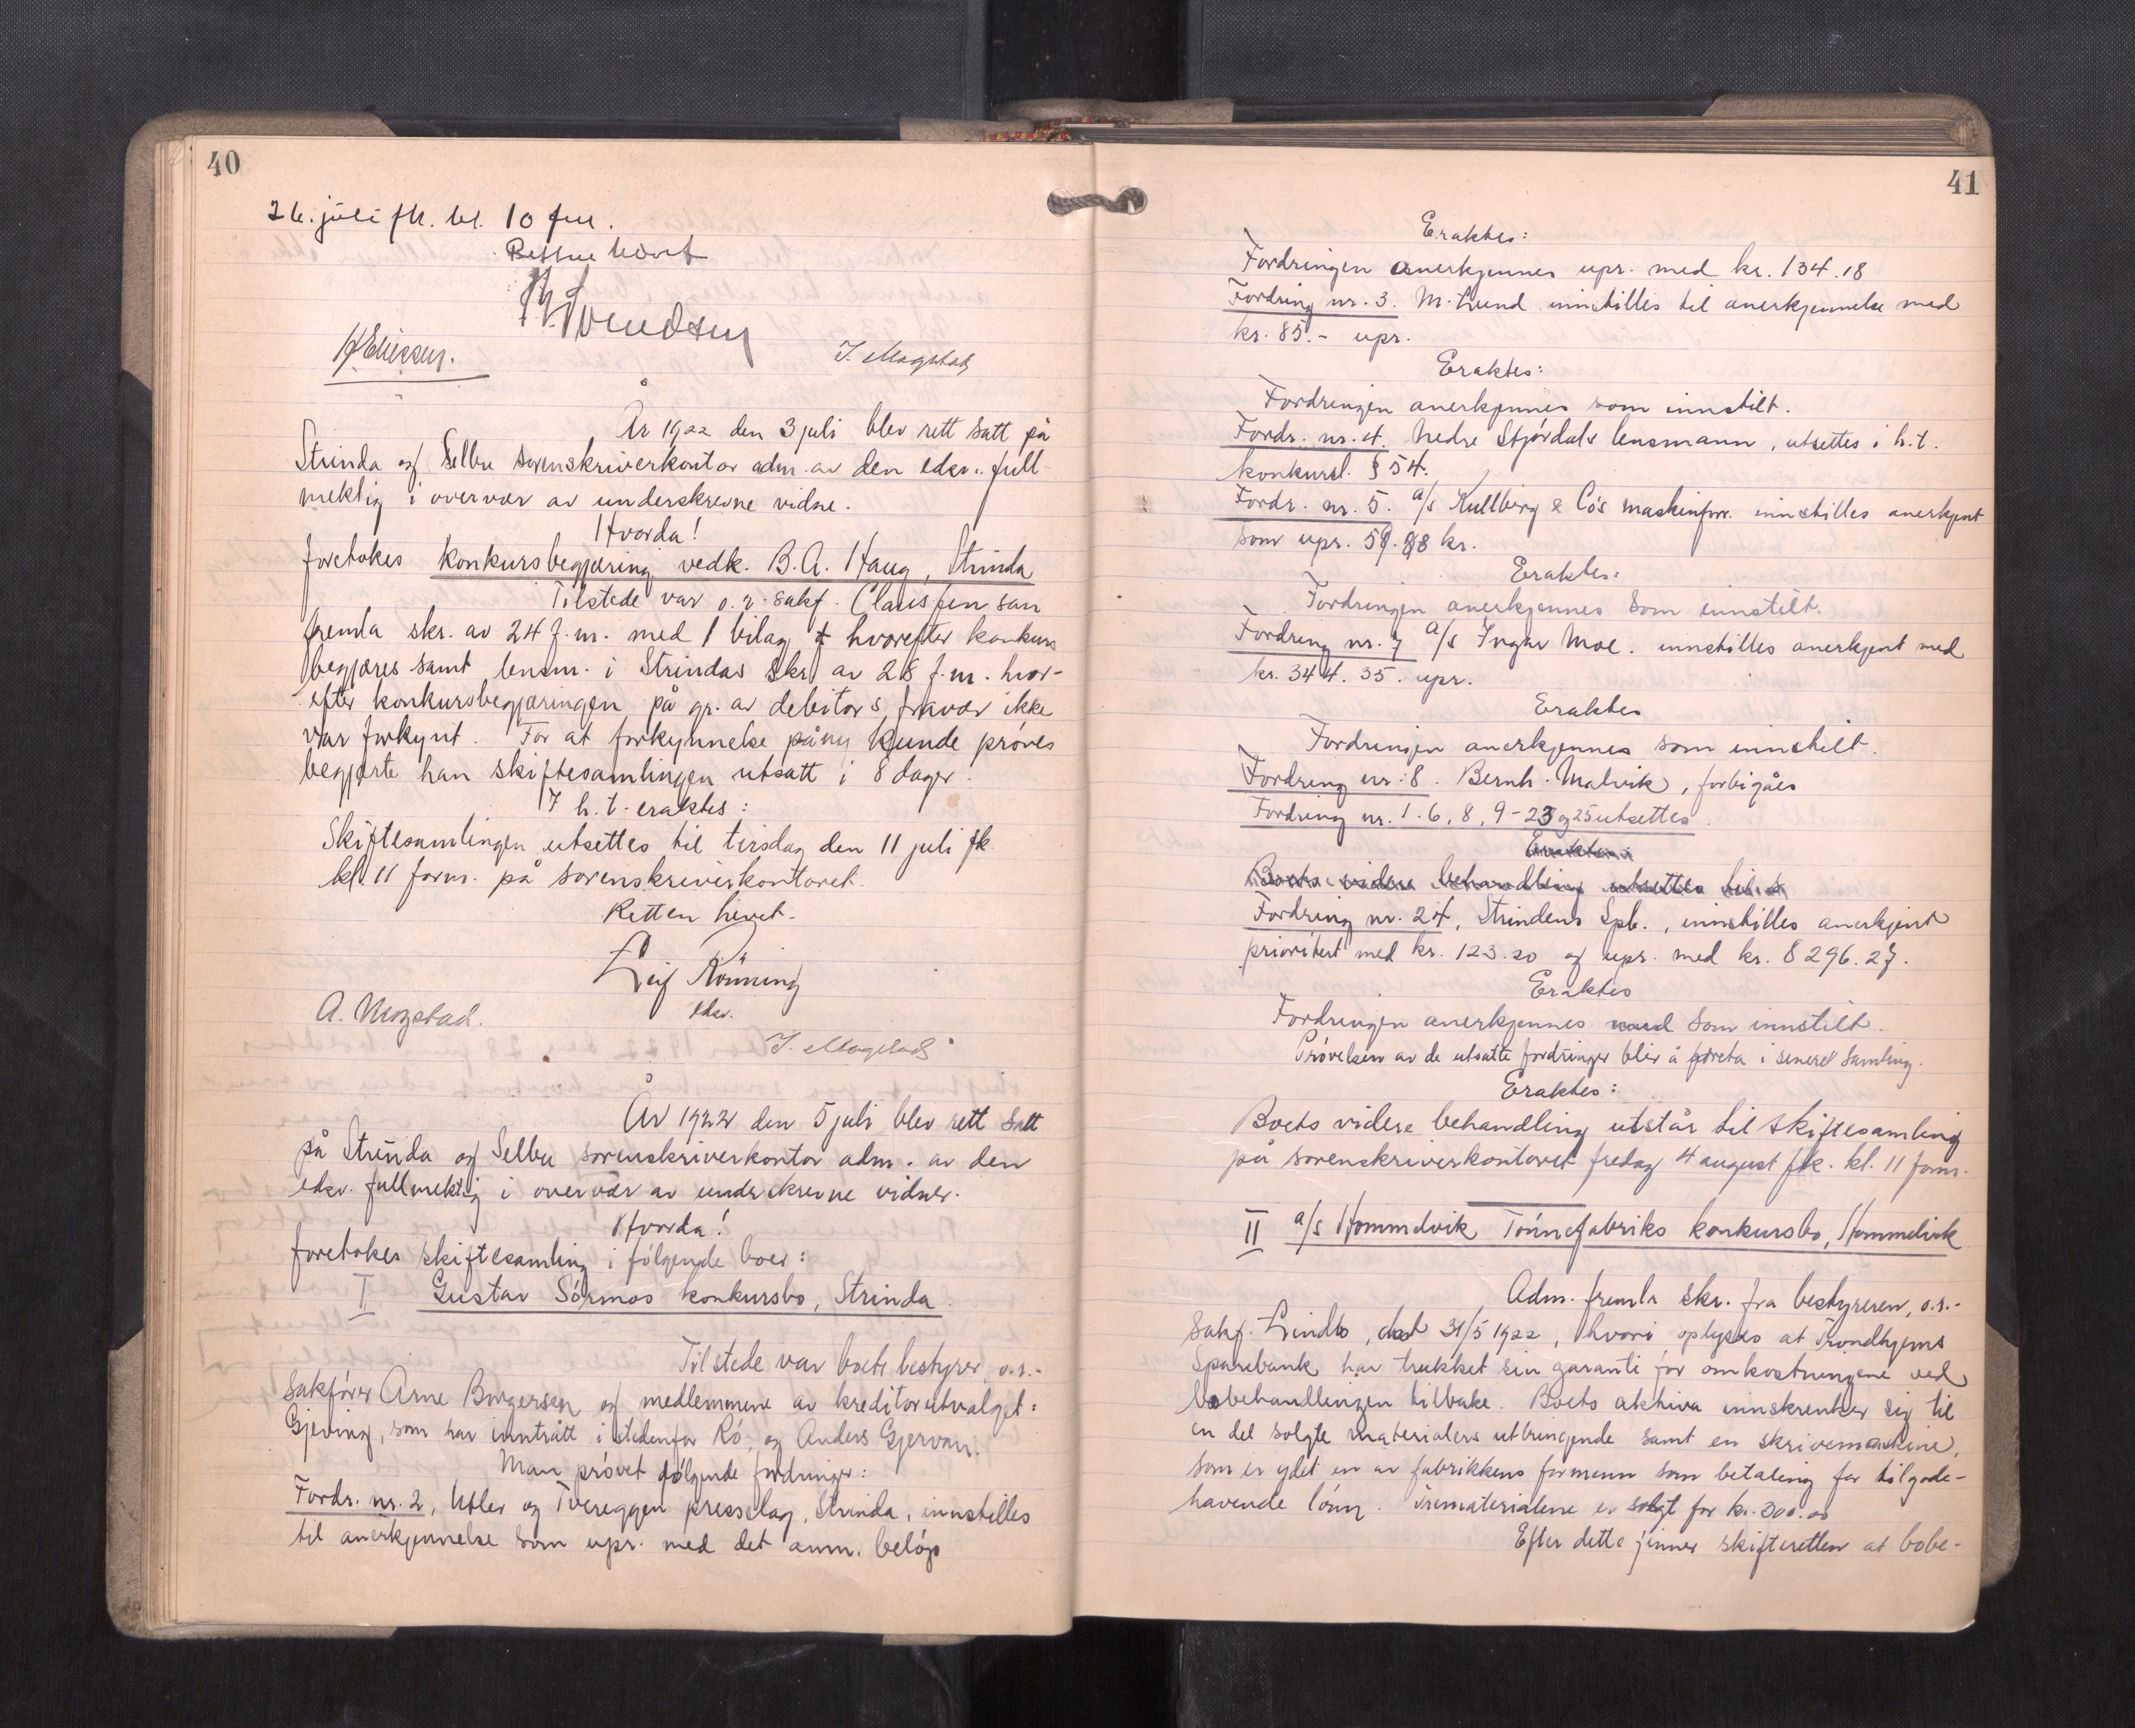 40
26. juli fk. kl. 10 fm.
Retten hevet
H. Eliessen.
J. Mogstad
År 1922 den 3 juli blev rett satt på
Strinda og Selbu sorenskriverkontor adm. av den edsv. full-
mektig i overvær av underskrevne vidne.
Hvorda!
foretokes konkursbegjæring vedk. B. A. Haug, Strinda
Tilstede var o.r. sakf. Claus Jensan
fremla skr. av 24 f.m. med 1 bilag hvorefter konkurs
begjæres samt lensm. i Strindas skr. av 28 f.m. hvor-
efter konkursbegjæringen på gr. av debitors fravær ikke
var forkynt. For at forkynnelse påny kunde prøves
begjærte han skiftesamlingen utsatt i 8 dager.
I h. t. eraktes:
Skiftesamlingen utsettes til tirsdag den 11 juli fk.
kl. 11 form. på sorenskriverkontoret.
Retten hevet.
Leif Rönning
edsv.
A. Mogstad.
J. Mogstad
År 1922 den 5 juli blev rett satt
på Strinda og Selbu sorenskriverkontor adm. av den
edsv. fullmektig i overvær av underskrevne vidner.
Hvorda!
foretokes skiftesamling i følgende boer:
I Gustav Sørmos konkursbo, Strinda.
Tilstede var boets bestyrer, o.r.-
sakfører Arne Borgersen og medlemmene av kreditorutvalget:
Gjeving, som har inntrått i stedenfor Ró, og Anders Gjervan.
Man prøvet følgende fordringer:
Fordr. nr. 2, Utler og Tvereggen presselag, Strinda, innstilles
til anerkjennelse som upr. med det anm. beløp
41
Eraktes:
Fordringen anerkjennes upr. med kr. 134.18
Fordring nr. 3. M. Lund innstilles til anerkjennelse med
kr. 85.- upr.
Eraktes:
Fordringen anerkjennes som innstilt.
Fordr. nr. 4. Nedre Stjørdals lensmann, utsettes i h.t.
konkursl. § 54.
Fordr. nr. 5. a/s Kullberg & Co's maskinforr. innstilles anerkjent
som upr. 59.88 kr.
Eraktes:
Fordringen anerkjennes som innstilt.
Fordring nr. 7 a/s Ingar Moe. innstilles anerkjent med
kr. 344.35. upr.
Eraktes
Fordringen anerkjennes som innstilt.
Fordring nr. 8. Bernh. Malvik, forbigåes
Fordring nr. 1. 6, 8, 9-23 og 25 utsettes.
Eraktes:
Boets videre behandling utsettes til
Fordring nr. 24, Strindens Spb., innstilles anerkjent
prioritert med kr. 123.20 og upr. med kr. 8296.27.
Eraktes
Fordringen anerkjennes som innstilt.
Prøvelsen av de utsatte fordringer blir å foreta i senere samling.
Eraktes:
Boets videre behandling utstår til skiftesamling
på sorenskriverkontoret fredag 4 august fk. kl. 11 form.
II a/s Hommelvik Tønnefabriks konkursbo, Hommelvik
Adm. fremla skr. fra bestyreren, o.r.-
sakf. Lindbo, dat 31/5 1922, hvori oplyses at Trondhjems
Sparebank har trukket sin garanti for omkostningene ved
bobehandlingen tilbake. Boets aktiva innskrenker sig til
en del solgte materialers utbringende samt en skrivemaskine,
som er ydet en av fabrikkens formenn som betaling for tilgode-
havende lønn. Trematerialene er solgt for kr. 300.00
Efter dette finner skifteretten at bobe-